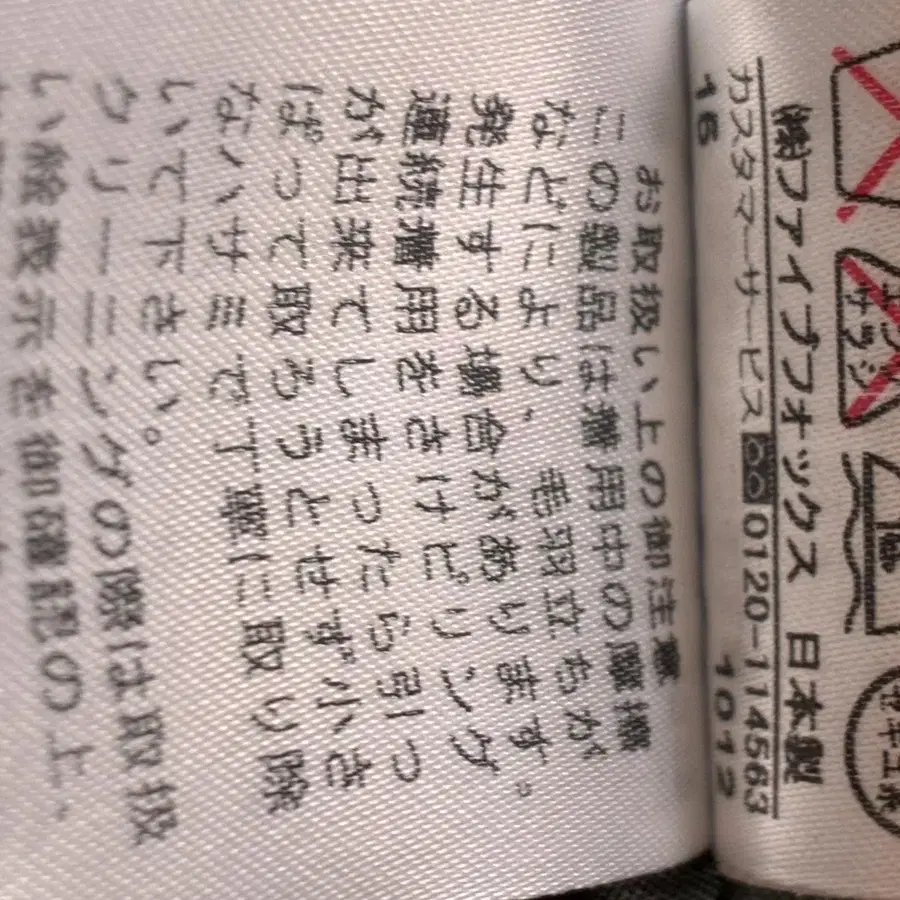 エンソ
サラシ
中
セキユ系
㈱ファイブフォックス 日本製
カスタマーサービス 0120-114563
16 1012
お取扱い上の御注意
この製品は着用中の摩擦
などにより、毛羽立ちが
発生する場合があります。
連続着用をさけピリング
が出来てしまったら引っ
ぱって取ろうとせず小さ
なハサミで丁寧に取り除
いて下さい。
クリーニングの際は取扱
い絵表示を御確認の上、